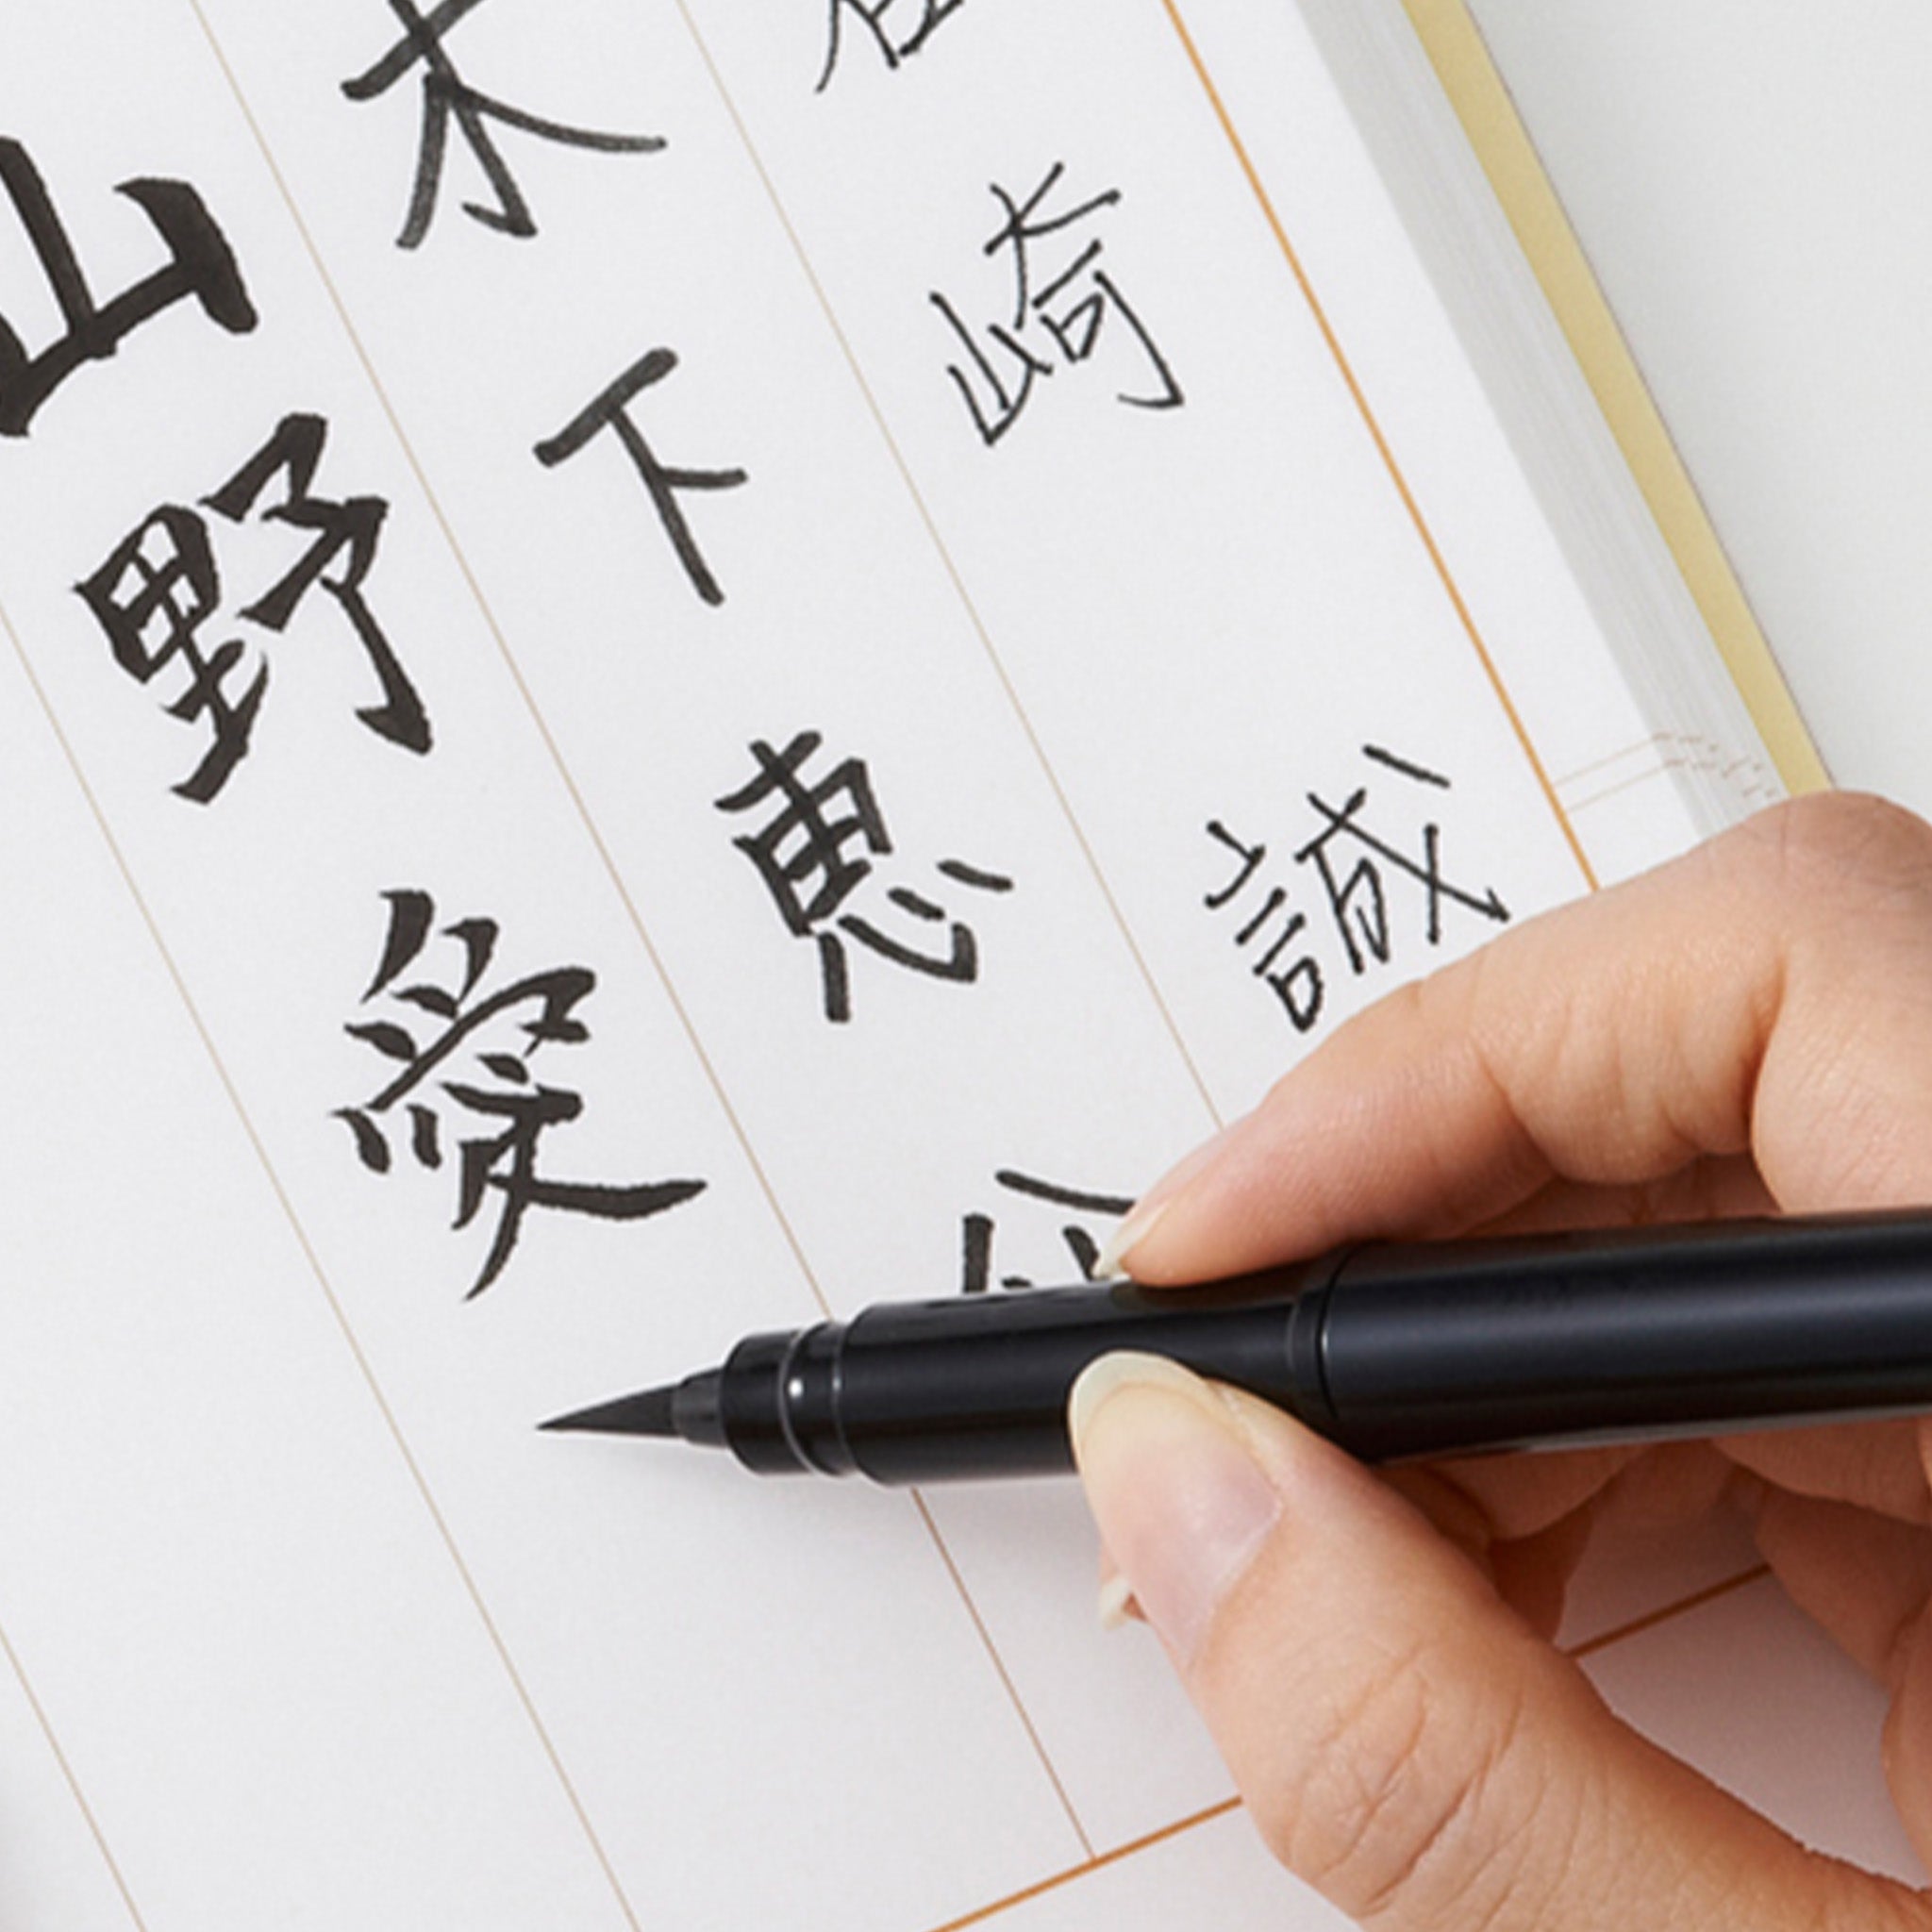 崎 誠
木下 恵
山野 愛